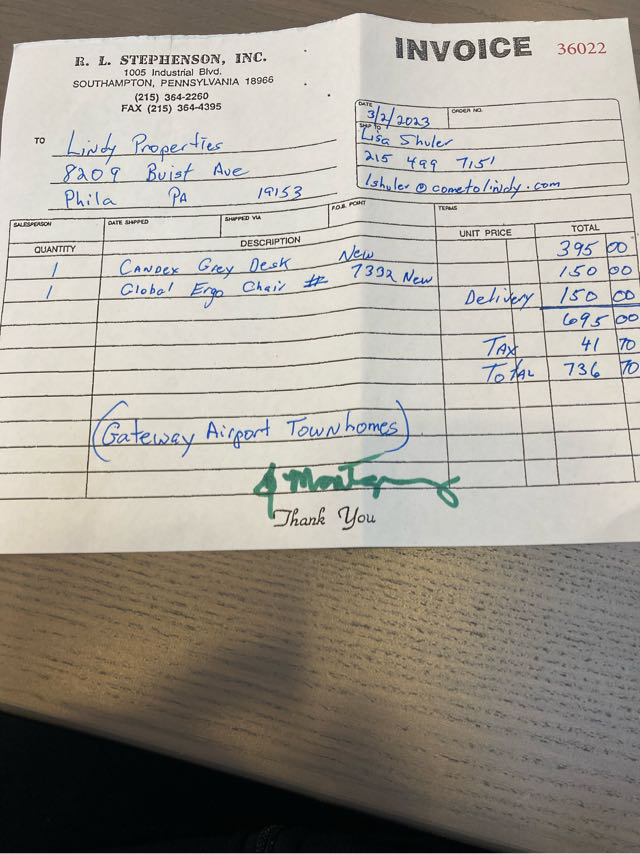 R. L. STEPHENSON, INC.
1005 Industrial Blvd.
SOUTHAMPTON, PENNSYLVANIA 18966
(215) 364-2260
FAX (215) 364-4395
INVOICE 36022
DATE
3/2/2023
ORDER NO.
SHIP TO
Lisa Shuler
215 499 7151
lshuler@cometolindy.com
TO
Lindy Properties
8209 Buist Ave
Phila PA 19153
SALESPERSON DATE SHIPPED SHIPPED VIA F.O.B. POINT TERMS
QUANTITY DESCRIPTION UNIT PRICE TOTAL
1 Candex Grey Desk New 395 00
1 Global Ergo Chair # 7392 New 150 00
Delivery 150 00
695 00
TAX 41 70
TOTAL 736 70
(Gateway Airport Townhomes)
Thank You